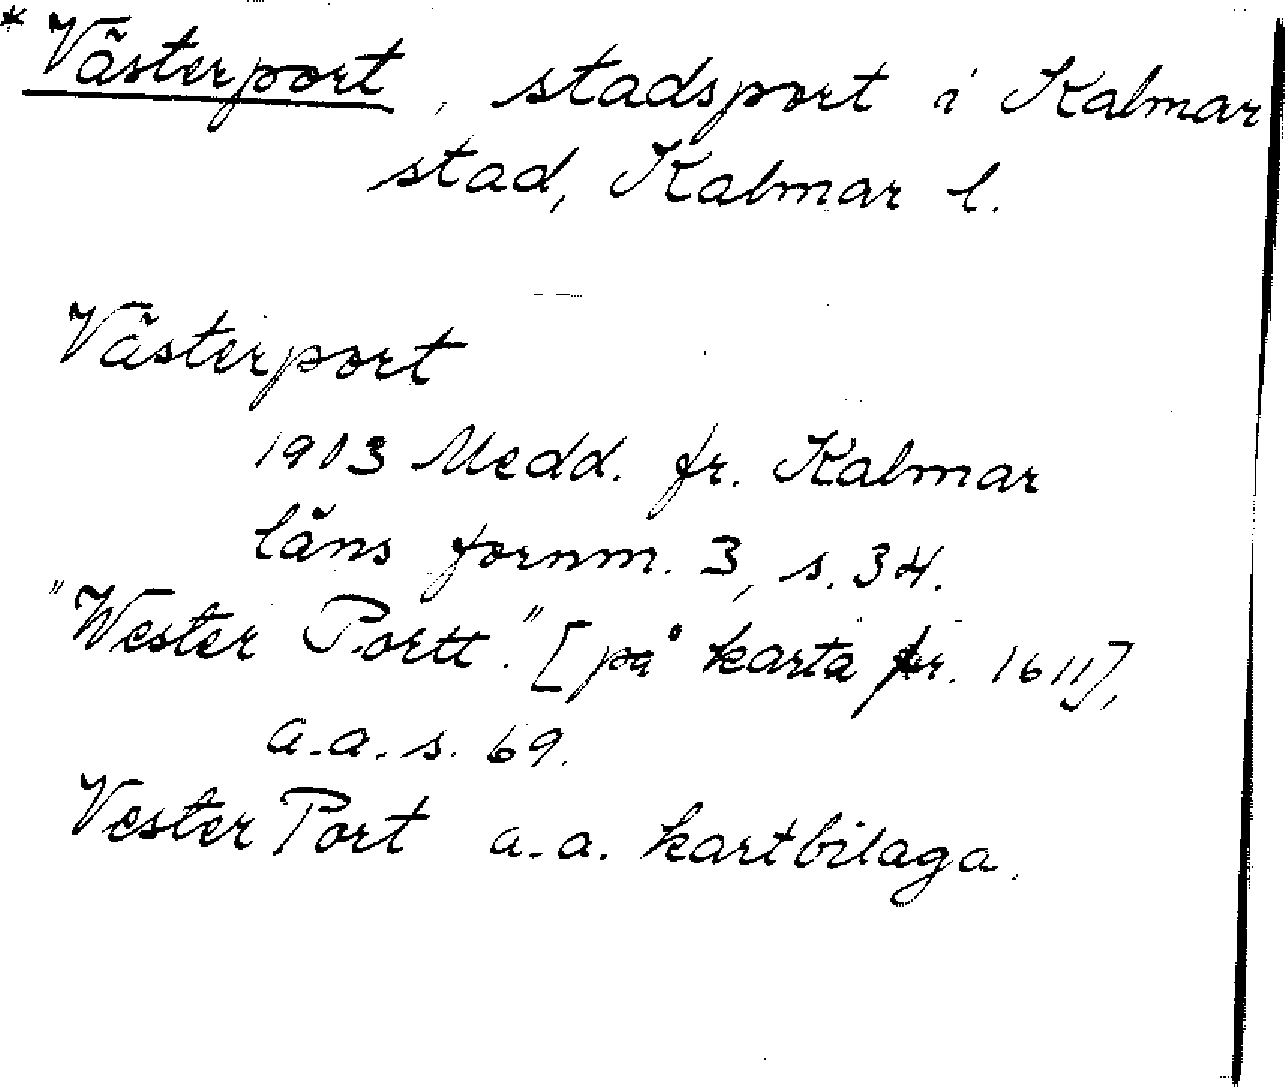 * Västerport, stadsport i Kalmar
stad, Kalmar l.
Västerport
1903 Medd. fr. Kalmar
läns fornm. 3, s. 34.
"Wester Portt." [på karta fr. 1611],
a.a. s. 69.
Vester Port a.a. kartbilaga.